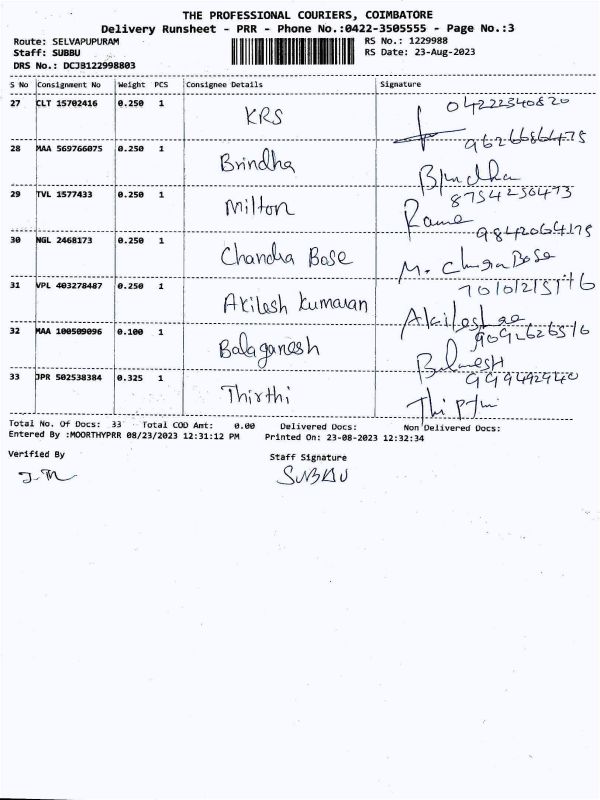 THE PROFESSIONAL COURIERS, COIMBATORE
Delivery Runsheet - PRR - Phone No.:0422-3505555 - Page No.:3
Route: SELVAPUPURAM RS No.: 1229988
Staff: SUBBU RS Date: 23-Aug-2023
DRS No.: DCJB122998803
S No Consignment No Weight PCS Consignee Details Signature
27 CLT 15702416 0.250 1 KRS 04222340820
28 MAA 569766075 0.250 1 Brindha 9626686475
Brindha
29 TVL 1577433 0.250 1 Milton 8754256473
Rame
30 NGL 2468173 0.250 1 Chandra Bose 9842064175
M.
31 VPL 403278487 0.250 1 Akilesh Kumaran
32 MAA 100509096 0.100 1 Balaganesh
33 JPR 502538384 0.325 1 Thirthi
Total No. Of Docs: 33 Total COD Amt: 0.00 Delivered Docs: Non Delivered Docs:
Entered By :MOORTHYPRR 08/23/2023 12:31:12 PM Printed On: 23-08-2023 12:32:34
Verified By Staff Signature
SUBBU